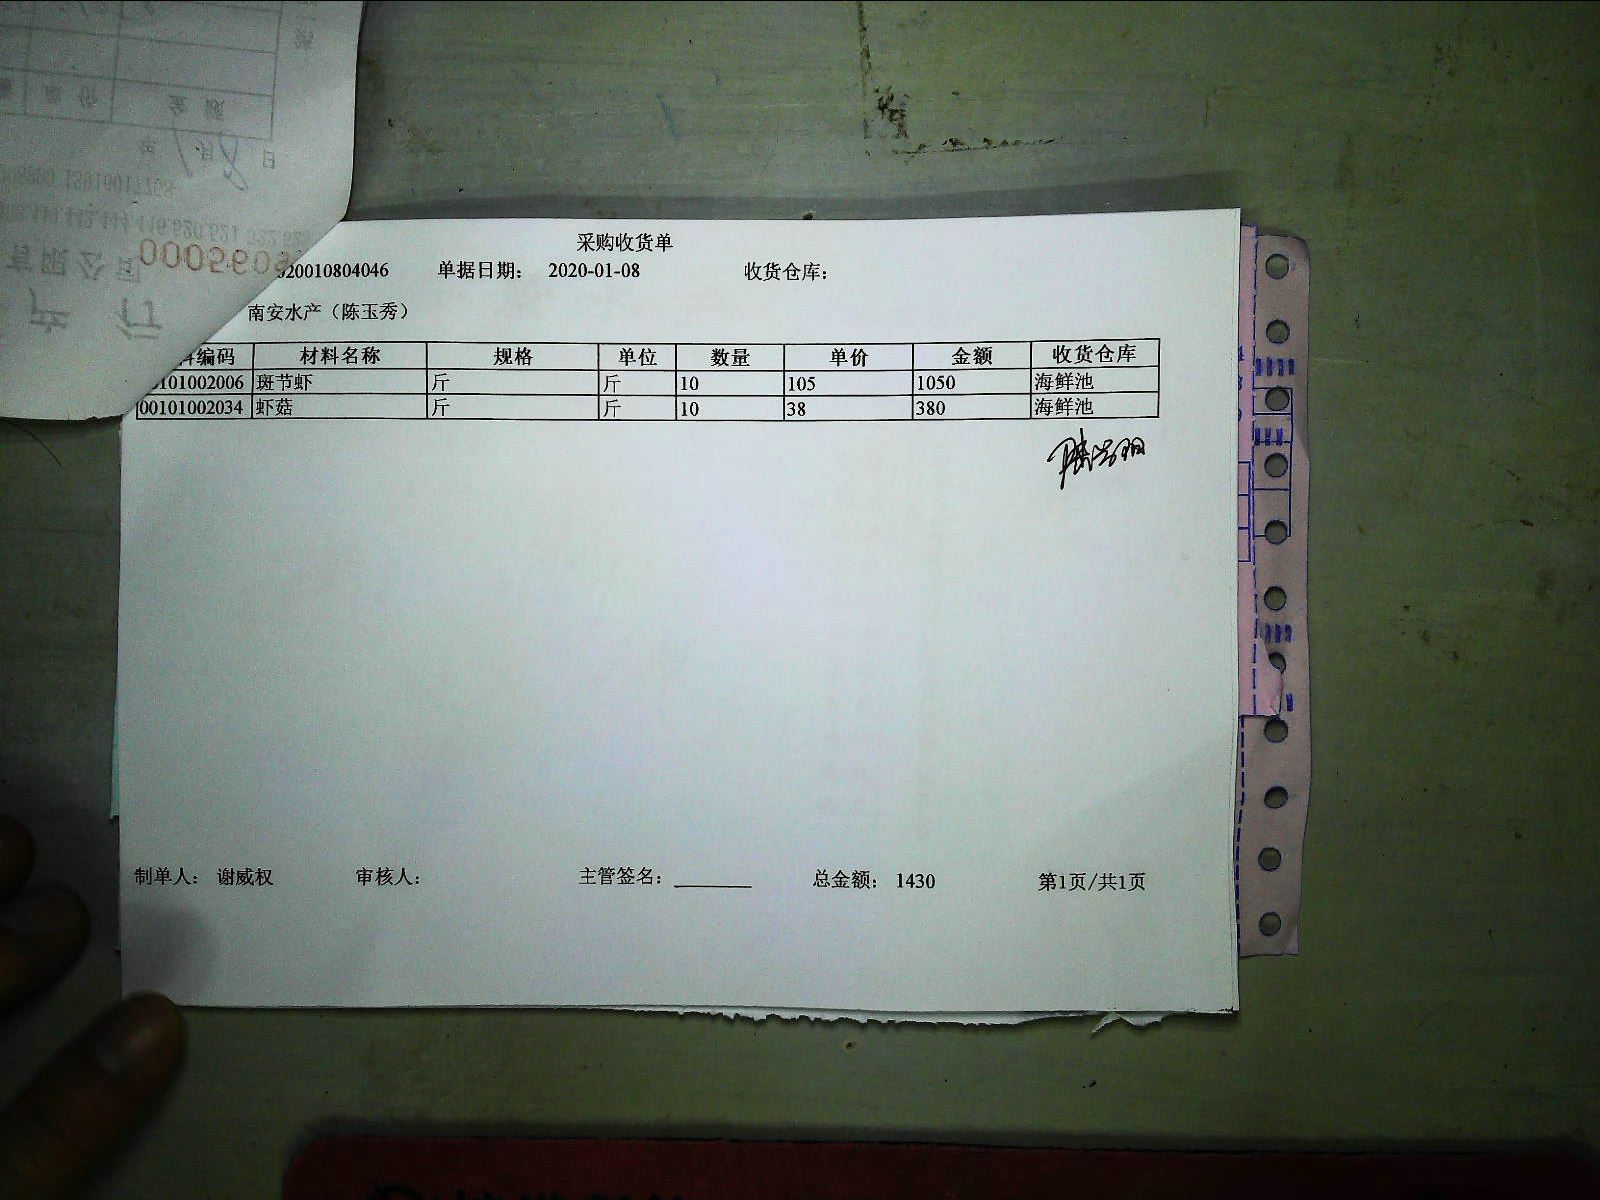 采购收货单
020010804046 单据日期： 2020-01-08 收货仓库：
南安水产（陈玉秀）
编码 材料名称 规格 单位 数量 单价 金额 收货仓库
0101002006 斑节虾 斤 斤 10 105 1050 海鲜池
00101002034 虾菇 斤 斤 10 38 380 海鲜池
制单人： 谢威权 审核人： 主管签名： 总金额： 1430 第1页/共1页
单价 金额
年 1月8日
有限公司 000560
产行